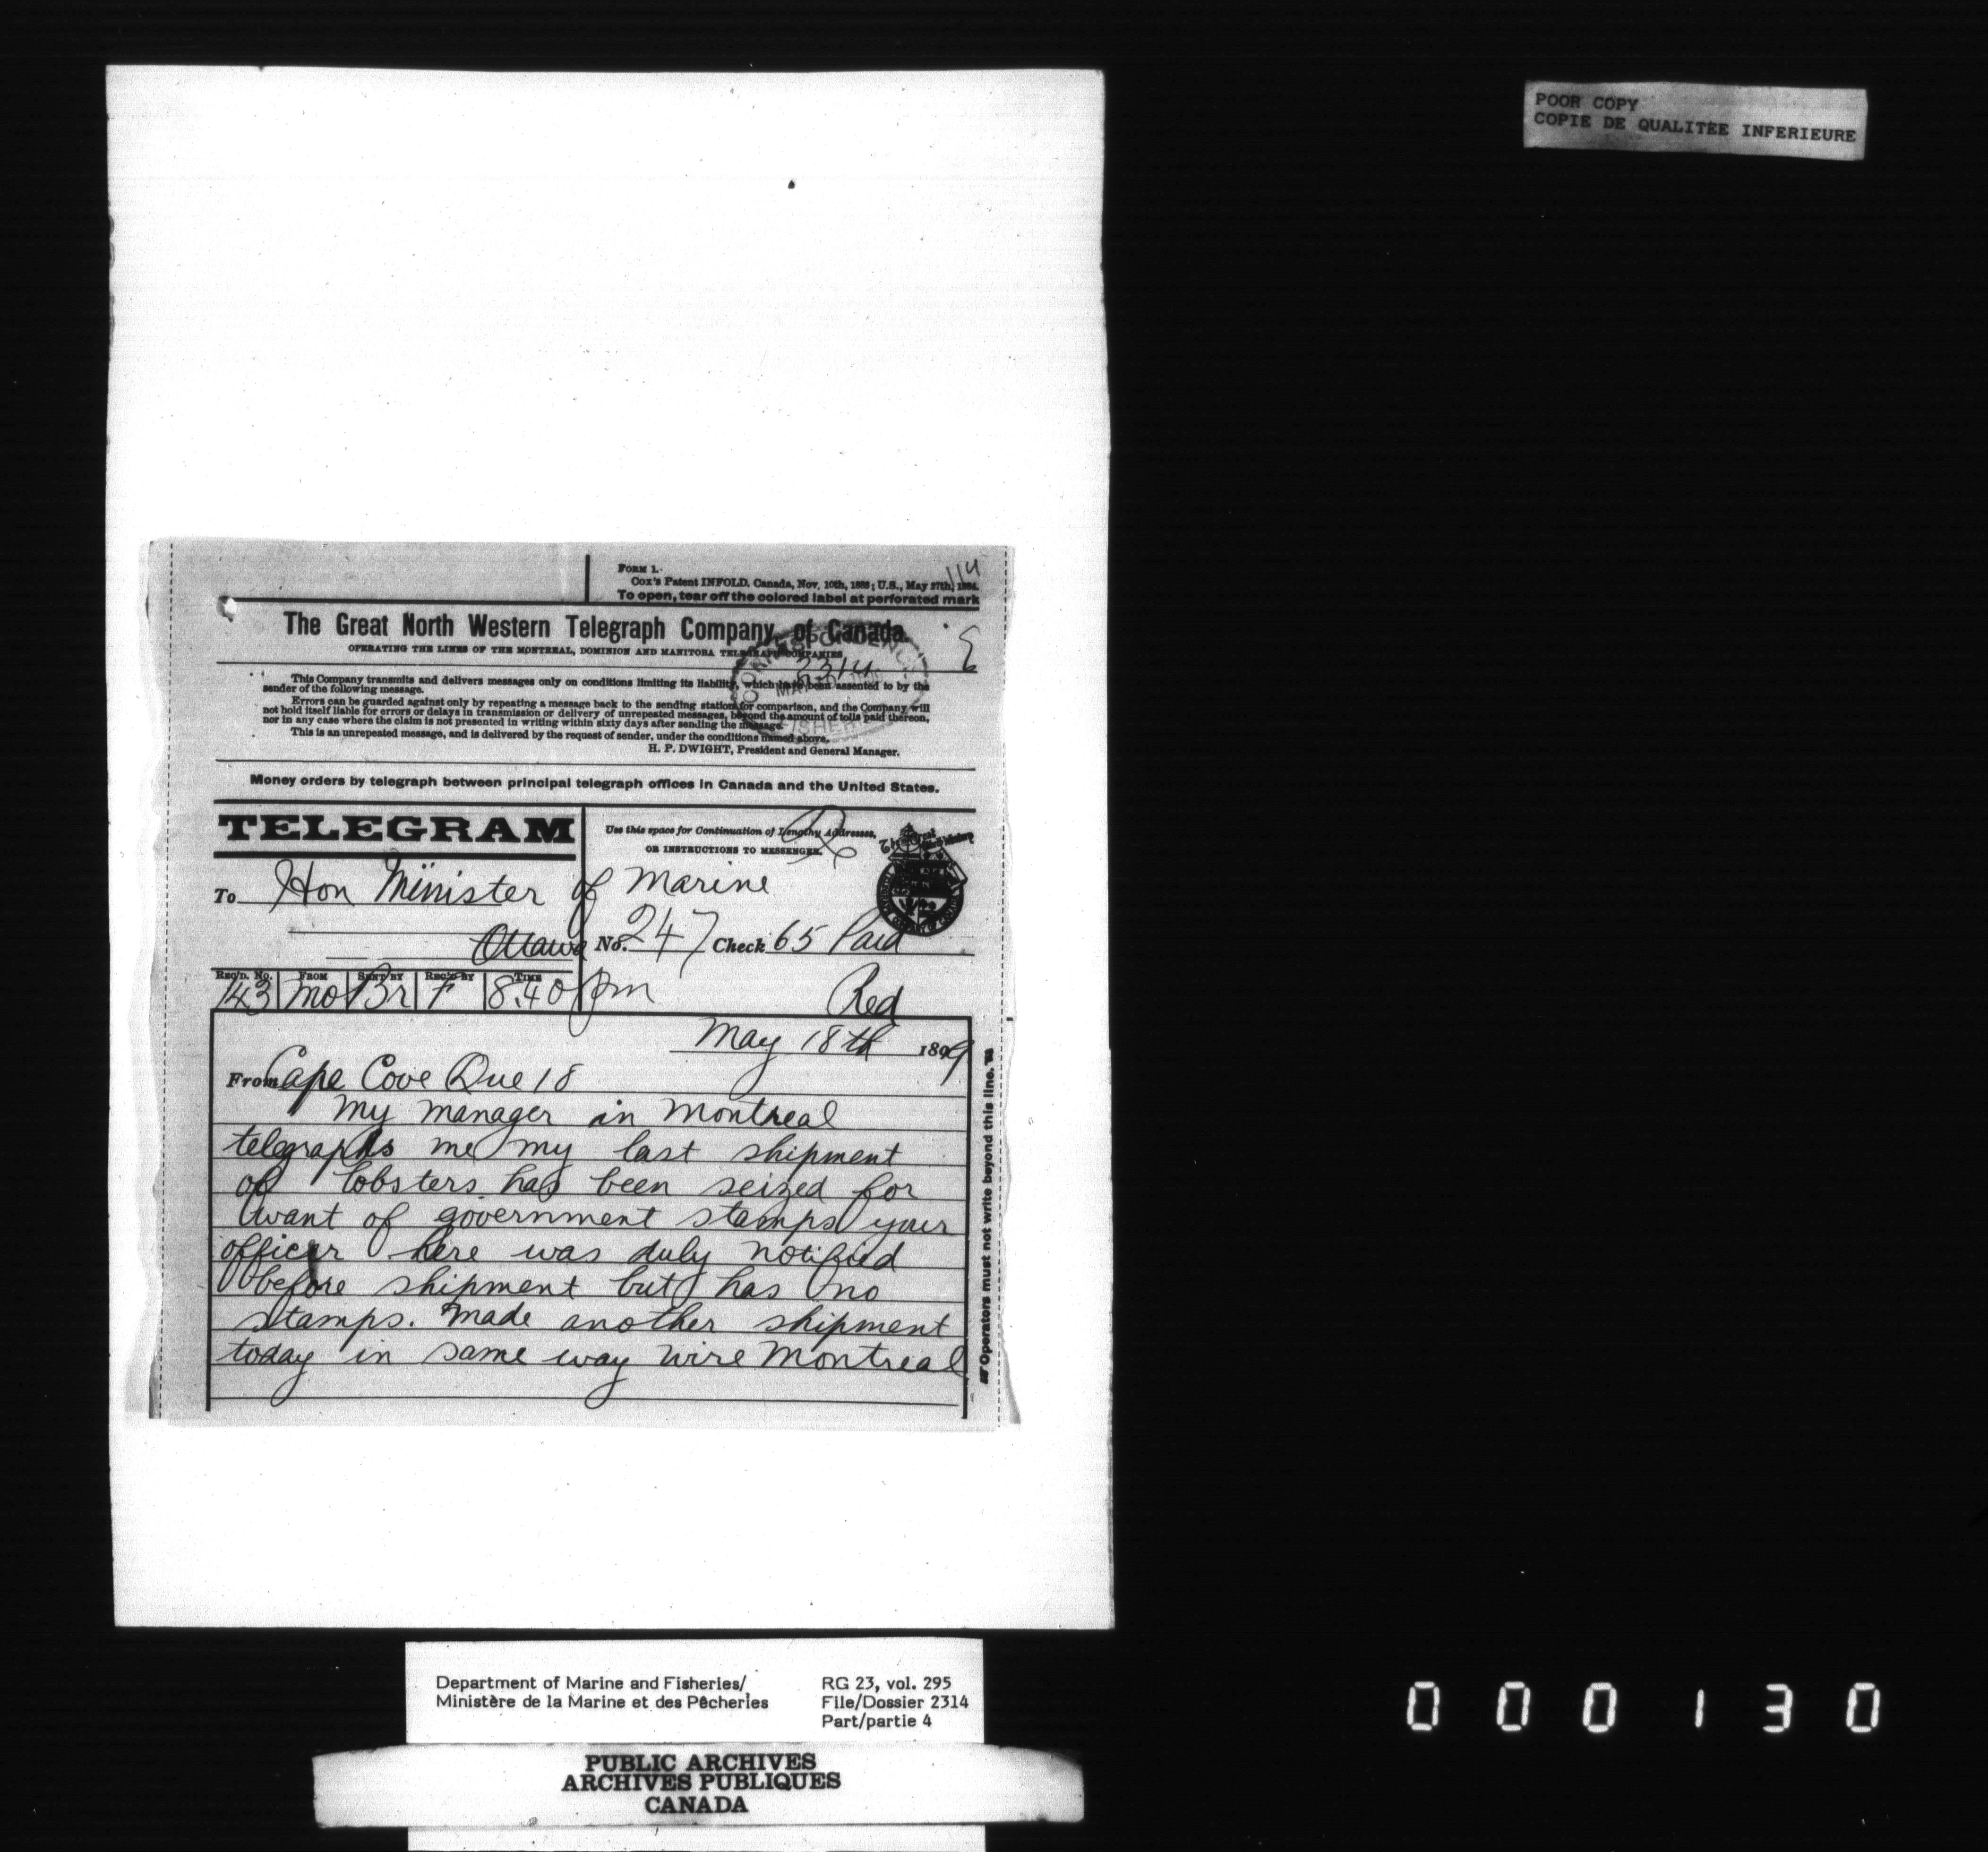 POOR COPY
COPIE DE QUALITÉE INFERIEURE
114
FORM 1.
Cox's Patent INFOLD, Canada, Nov. 10th, 1883; U.S., May 27th, 1884.
To open, tear off the colored label at perforated mark
The Great North Western Telegraph Company, of Canada.
OPERATING THE LINES OF THE MONTREAL, DOMINION AND MANITOBA TELEGRAPH COMPANIES
2314
This Company transmits and delivers messages only on conditions limiting its liability, which have been assented to by the
sender of the following message.
Errors can be guarded against only by repeating a message back to the sending station for comparison, and the Company will
not hold itself liable for errors or delays in transmission or delivery of unrepeated messages, beyond the amount of tolls paid thereon,
nor in any case where the claim is not presented in writing within sixty days after sending the message.
This is an unrepeated message, and is delivered by the request of sender, under the conditions named above.
H. P. DWIGHT, President and General Manager.
Money orders by telegraph between principal telegraph offices in Canada and the United States.
TELEGRAM
Use this space for Continuation of Lengthy Addresses,
OR INSTRUCTIONS TO MESSENGER.
To Hon Minister of Marine
Ottawa No. 247 Check 65 Paid
REC'D. No. FROM SENT BY REC'D BY TIME
143 Mo Br F 8.40 pm Red
May 18th 1899
From Cape Cove Que 18
My manager in Montreal
telegraphs me my last shipment
of lobsters has been seized for
want of government stamps your
officer here was duly notified
before shipment but has no
stamps. Made another shipment
today in same way wire Montreal
Operators must not write beyond this line.
Department of Marine and Fisheries/
Ministère de la Marine et des Pêcheries
RG 23, vol. 295
File/Dossier 2314
Part/partie 4
PUBLIC ARCHIVES
ARCHIVES PUBLIQUES
CANADA
000130